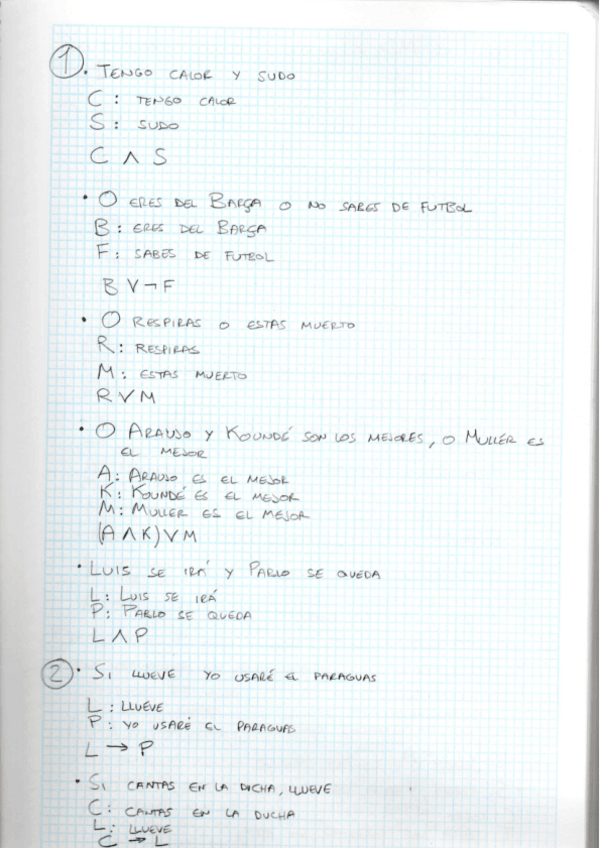 1 • TENGO CALOR Y SUDO
C: TENGO CALOR
S: SUDO
C ∧ S
• O ERES DEL BARÇA O NO SABES DE FUTBOL
B: ERES DEL BARÇA
F: SABES DE FUTBOL
B V ¬ F
• O RESPIRAS O ESTAS MUERTO
R: RESPIRAS
M: ESTAS MUERTO
R V M
• O ARAUJO Y KOUNDÉ SON LOS MEJORES, O MULLER ES
EL MEJOR
A: ARAUJO ES EL MEJOR
K: KOUNDÉ ES EL MEJOR
M: MULLER ES EL MEJOR
(A ∧ K) V M
• LUIS SE IRÁ Y PABLO SE QUEDA
L: LUIS SE IRÁ
P: PABLO SE QUEDA
L ∧ P
2 • SI LLUEVE YO USARÉ EL PARAGUAS
L: LLUEVE
P: YO USARÉ EL PARAGUAS
L → P
• SI CANTAS EN LA DUCHA, LLUEVE
C: CANTAS EN LA DUCHA
L: LLUEVE
C → L